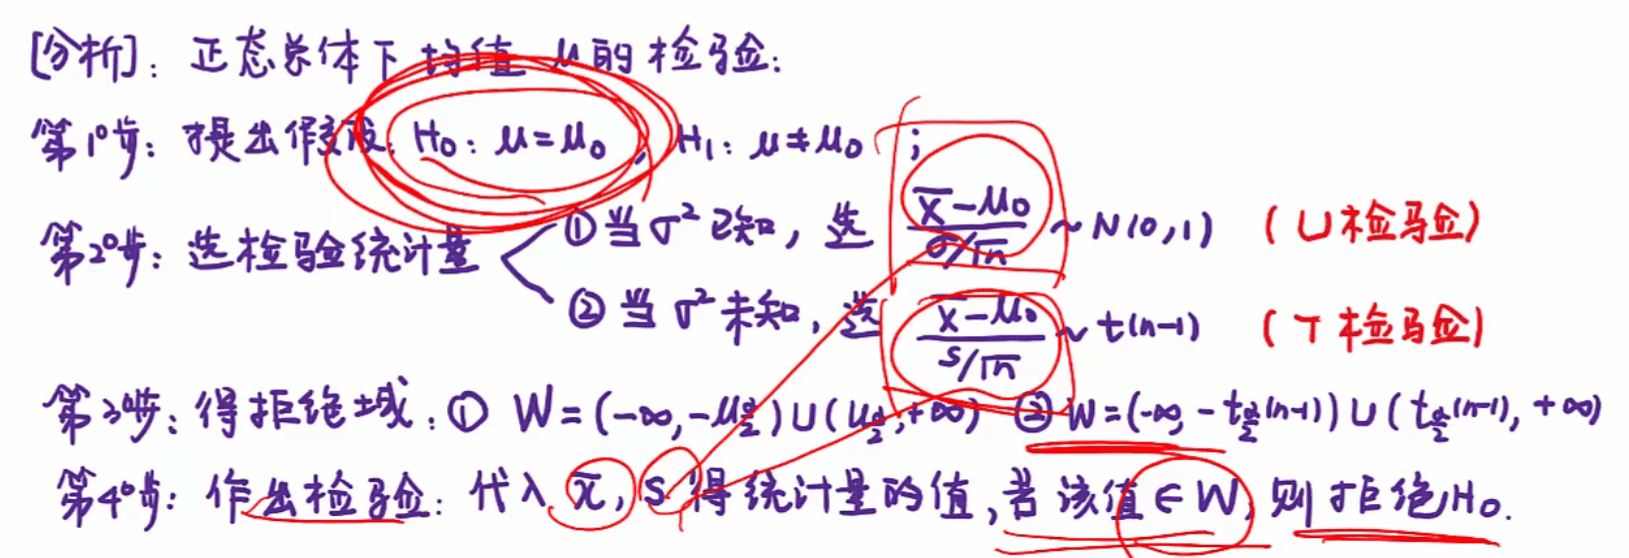 [分析]：正态总体下均值μ的检验：
第1°步：提出假设：H₀：μ=μ₀，H₁：μ≠μ₀；
第2°步：选检验统计量
①当σ²已知，选 (x̄-μ₀)/(σ/√n) ~ N(0,1) （U检验）
②当σ²未知，选 (x̄-μ₀)/(s/√n) ~ t(n-1) （T检验）
第3°步：得拒绝域：① W=(-∞,-μ_{α/2})∪(μ_{α/2},+∞) ② W=(-∞,-t_{α/2}(n-1))∪(t_{α/2}(n-1),+∞)
第4°步：作出检验：代入x̄，s得统计量的值，若该值∈W，则拒绝H₀.